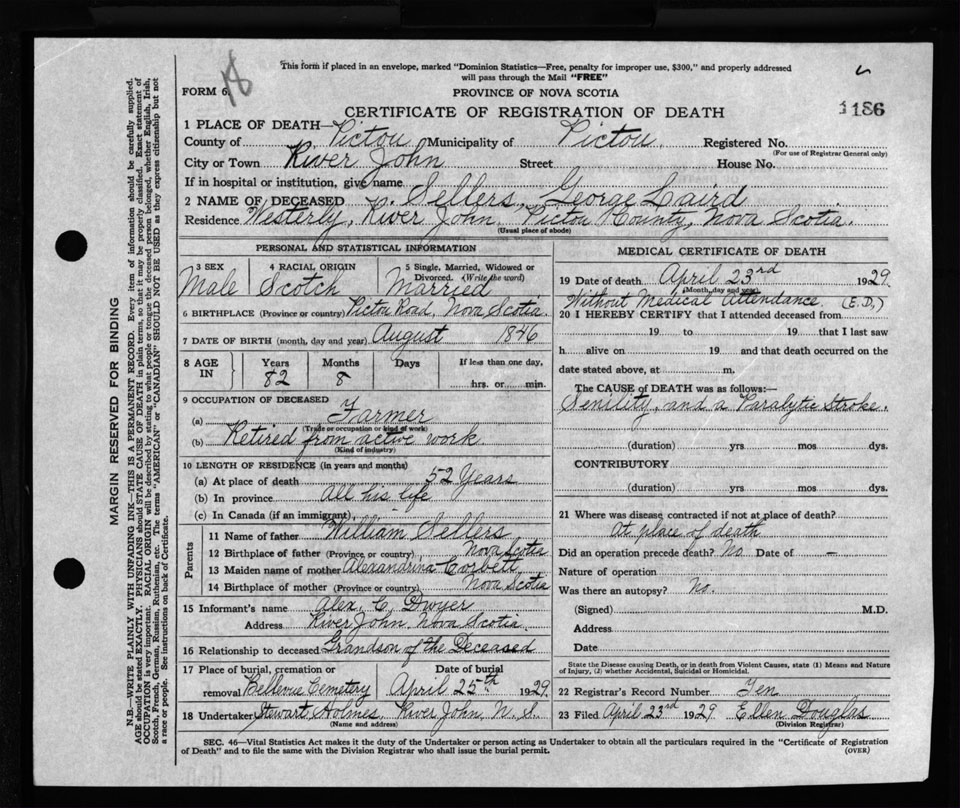 18
This form if placed in an envelope, marked "Dominion Statistics—Free, penalty for improper use, $300," and properly addressed
will pass through the Mail "FREE"
FORM 6.
PROVINCE OF NOVA SCOTIA
CERTIFICATE OF REGISTRATION OF DEATH
1186
1 PLACE OF DEATH—
County of Pictou Municipality of Pictou. Registered No.
(For use of Registrar General only)
City or Town River John Street House No.
If in hospital or institution, give name
2 NAME OF DECEASED Sellers, George Laird
Residence Westerly, River John, Pictou County, Nova Scotia.
(Usual place of abode)
PERSONAL AND STATISTICAL INFORMATION
3 SEX Male
4 RACIAL ORIGIN Scotch
5 Single, Married, Widowed or Divorced. (Write the word) Married
6 BIRTHPLACE (Province or country) Pictou Road, Nova Scotia.
7 DATE OF BIRTH (month, day and year) August 1846
8 AGE IN Years Months Days If less than one day,
82 8 hrs. or min.
9 OCCUPATION OF DECEASED
(a) Farmer
(Trade or occupation or kind of work)
(b) Retired from active work
(Kind of industry)
10 LENGTH OF RESIDENCE (in years and months)
(a) At place of death 52 Years
(b) In province All his life
(c) In Canada (if an immigrant)
Parents
11 Name of father William Sellers
12 Birthplace of father (Province or country) Nova Scotia
13 Maiden name of mother Alexandrina Corbett
14 Birthplace of mother (Province or country) Nova Scotia
15 Informant's name Alex. C. Dwyer
Address River John, Nova Scotia.
16 Relationship to deceased Grandson of the Deceased
17 Place of burial, cremation or removal Bellevue Cemetery
Date of burial April 25th 1929.
18 Undertaker Stewart Holmes, River John, N. S.
(Name and address)
MEDICAL CERTIFICATE OF DEATH
19 Date of death April 23rd 1929.
(Month, day and year)
Without Medical Attendance. (E.D.)
20 I HEREBY CERTIFY that I attended deceased from
19 to 19 that I last saw
h alive on 19 and that death occurred on the
date stated above, at m.
The CAUSE of DEATH was as follows:—
Senility, and a Paralytic Stroke.
(duration) yrs mos dys.
CONTRIBUTORY
(duration) yrs mos dys.
21 Where was disease contracted if not at place of death?
At place of death
Did an operation precede death? No Date of —
Nature of operation
Was there an autopsy? No.
(Signed) M.D.
Address
Date
State the Disease causing Death, or in death from Violent Causes, state (1) Means and Nature
of Injury, (2) whether Accidental, Suicidal or Homicidal.
22 Registrar's Record Number Ten
23 Filed April 23rd 1929 Ellen Douglas
(Division Registrar)
SEC. 46—Vital Statistics Act makes it the duty of the Undertaker or person acting as Undertaker to obtain all the particulars required in the "Certificate of Registration
of Death" and to file the same with the Division Registrar who shall issue the burial permit. (OVER)
MARGIN RESERVED FOR BINDING
N.B.—WRITE PLAINLY WITH UNFADING INK—THIS IS A PERMANENT RECORD. Every item of information should be carefully supplied.
AGE should be stated EXACTLY. PHYSICIANS should STATE CAUSE OF DEATH in plain terms, so that it may be properly classified. Exact statement of
OCCUPATION is very important. RACIAL ORIGIN will be described by stating to what people or tongue the deceased person belonged, whether English, Irish,
Scotch, French, German, Russian, Ruthenian, etc. The terms "AMERICAN" or "CANADIAN" SHOULD NOT BE USED as they express citizenship but not
a race or people. See instructions on back of Certificate.